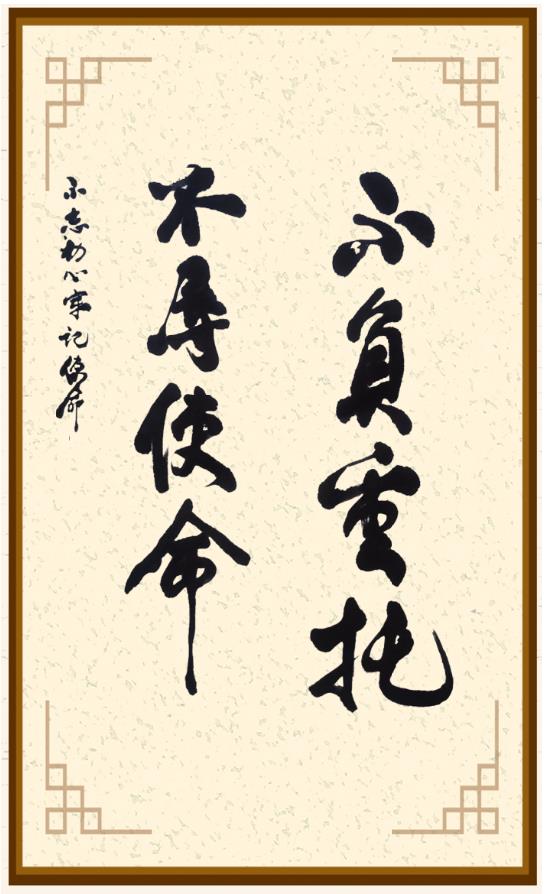 不负重托
不辱使命
不忘初心牢记使命